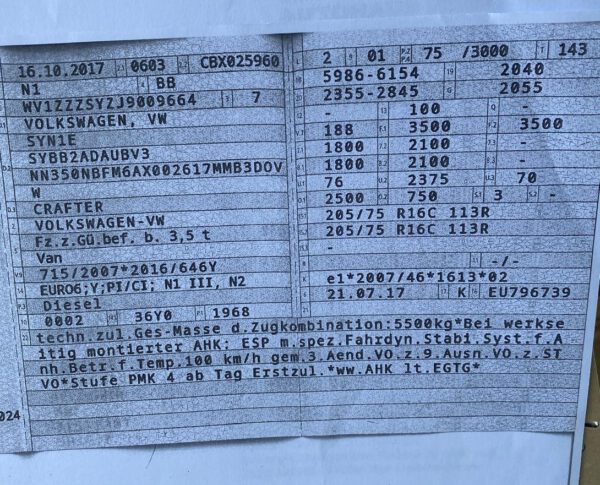 16.10.2017 0603 CBX025960
N1 BB
WV1ZZZSYZJ9009664 7
VOLKSWAGEN, VW
SYN1E
SYBB2ADAUBV3
NN350NBFM6AX002617MMB3DOV
W
CRAFTER
VOLKSWAGEN-VW
Fz.z.Gü.bef. b. 3,5 t
Van
715/2007*2016/646Y
EURO6;Y;PI/CI; N1 III, N2
Diesel
0002 36Y0 1968
2 01 75 /3000 143
5986-6154 2040
2355-2845 2055
- 100 -
188 3500 3500
1800 2100 -
1800 2100 -
76 2375 70
2500 750 3 -
205/75 R16C 113R
205/75 R16C 113R
-
-/-
e1*2007/46*1613*02
21.07.17 K EU796739
techn.zul.Ges-Masse d.Zugkombination:5500kg*Bei werkse
itig montierter AHK; ESP m.spez.Fahrdyn.Stabi.Syst.f.A
nh.Betr.f.Temp.100 km/h gem.3.Aend.VO.z.9.Ausn.VO.z.ST
VO*Stufe PMK 4 ab Tag Erstzul.*ww.AHK lt.EGTG*
024